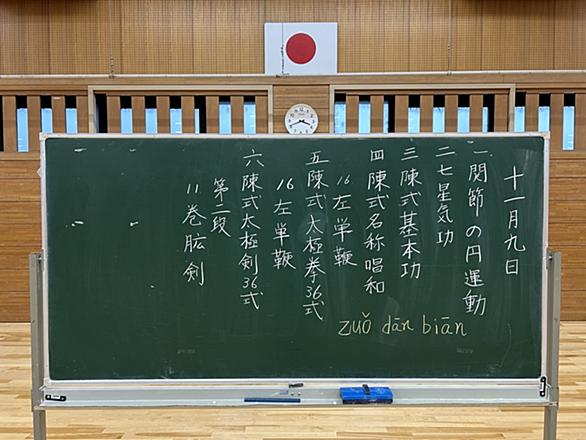 十一月九日
一関節の円運動
二七星気功
三陳式基本功
四陳式名称唱和
16左単鞭
五陳式太極拳36式
16左単鞭
六陳式太極剣36式
第二段
11巻肱剣
zuǒ dān biān